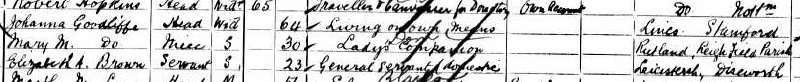 Robert Hopkins Head Widr 65 Traveller & Canvasser for Drapery Own Account Do Nottm
Johanna Goodliffe Head Wid 64 Living on own Means Lincs Stamford
Mary M. Do Niece S 30 Lady's Companion Rutland Leighfield Parish
Elizabeth A. Brown Servant S 23 General Servant domestic Leicestersh. Diseworth
Head M